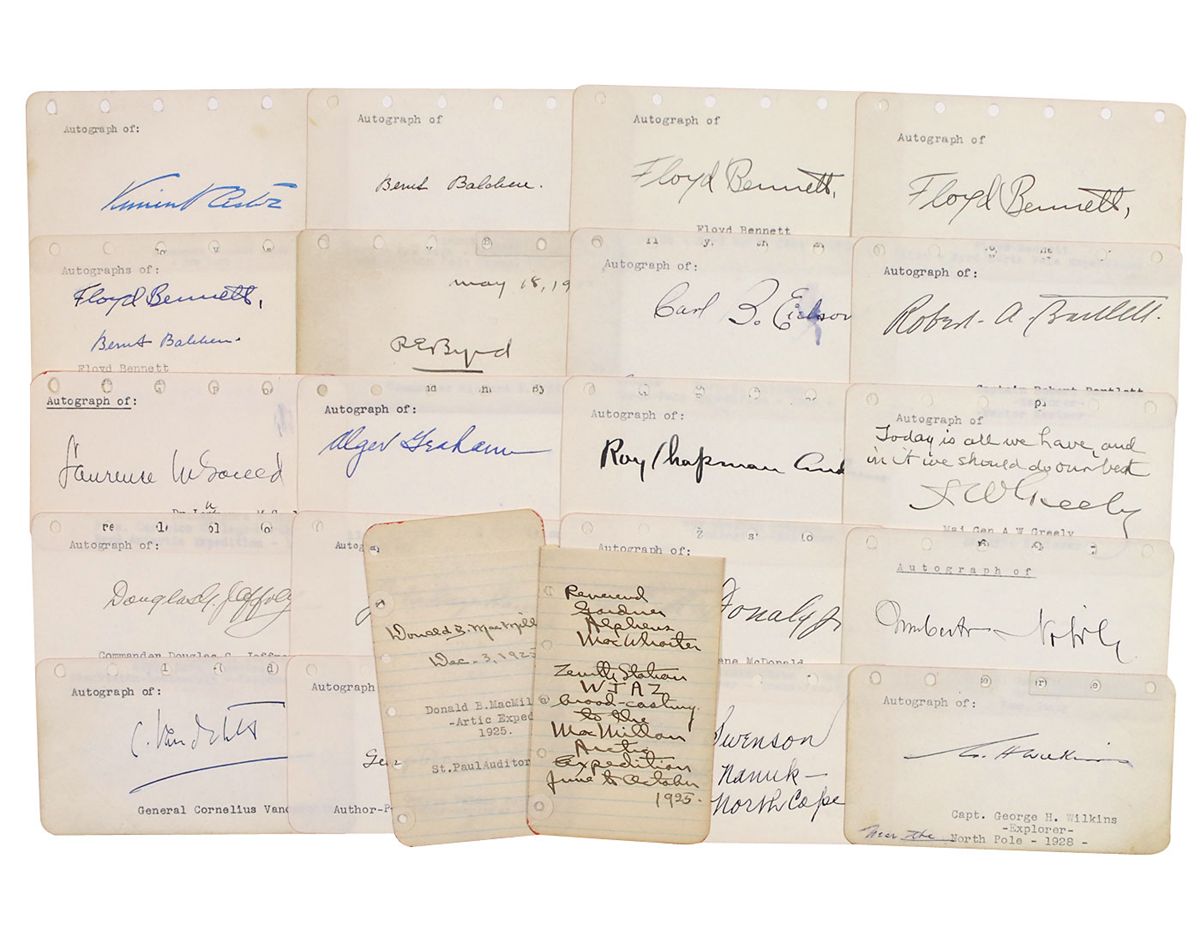 Autograph of:
Vincent Astor
Autograph of
Bernt Balchen.
Autograph of
Floyd Bennett,
Floyd Bennett
Autograph of
Floyd Bennett,
Autographs of:
Floyd Bennett,
Bernt Balchen.
Floyd Bennett
May 18, 19
R E Byrd
Autograph of:
Carl B. Eielson
Autograph of:
Robert A. Bartlett.
Captain Robert Bartlett
Autograph of:
Laurence M Gould
Autograph of:
Alger Graham
Autograph of:
Roy Chapman And
Autograph of
Today is all we have, and
in it we should do our best
A W Greely
Maj Gen A W Greely
Autograph of:
Douglas G. Jeffrey
Commander Douglas G. Jeffre
Autog
Donald B. MacMill
Dec. 3, 1925
Donald B.MacMil
-Artic Exped
1925.
St.Paul Auditor
Reverend
Gardner
Alpheus
MacWhorter
Zenith Station
W J A Z
broad-casting
to the
MacMillan
Arctic
Expedition
June to October
1925.
Autograph of:
Donald Jr
ene McDonald
Autograph of
Umberto Nobile
Autograph of:
C. Vanderbilt
General Cornelius Vand
Autograph
Geo
Author-P
Swenson
Nanuk-
North Cape
Autograph of:
G. H Wilkins
Capt. George H. Wilkins
-Explorer-
Near the North Pole - 1928 -